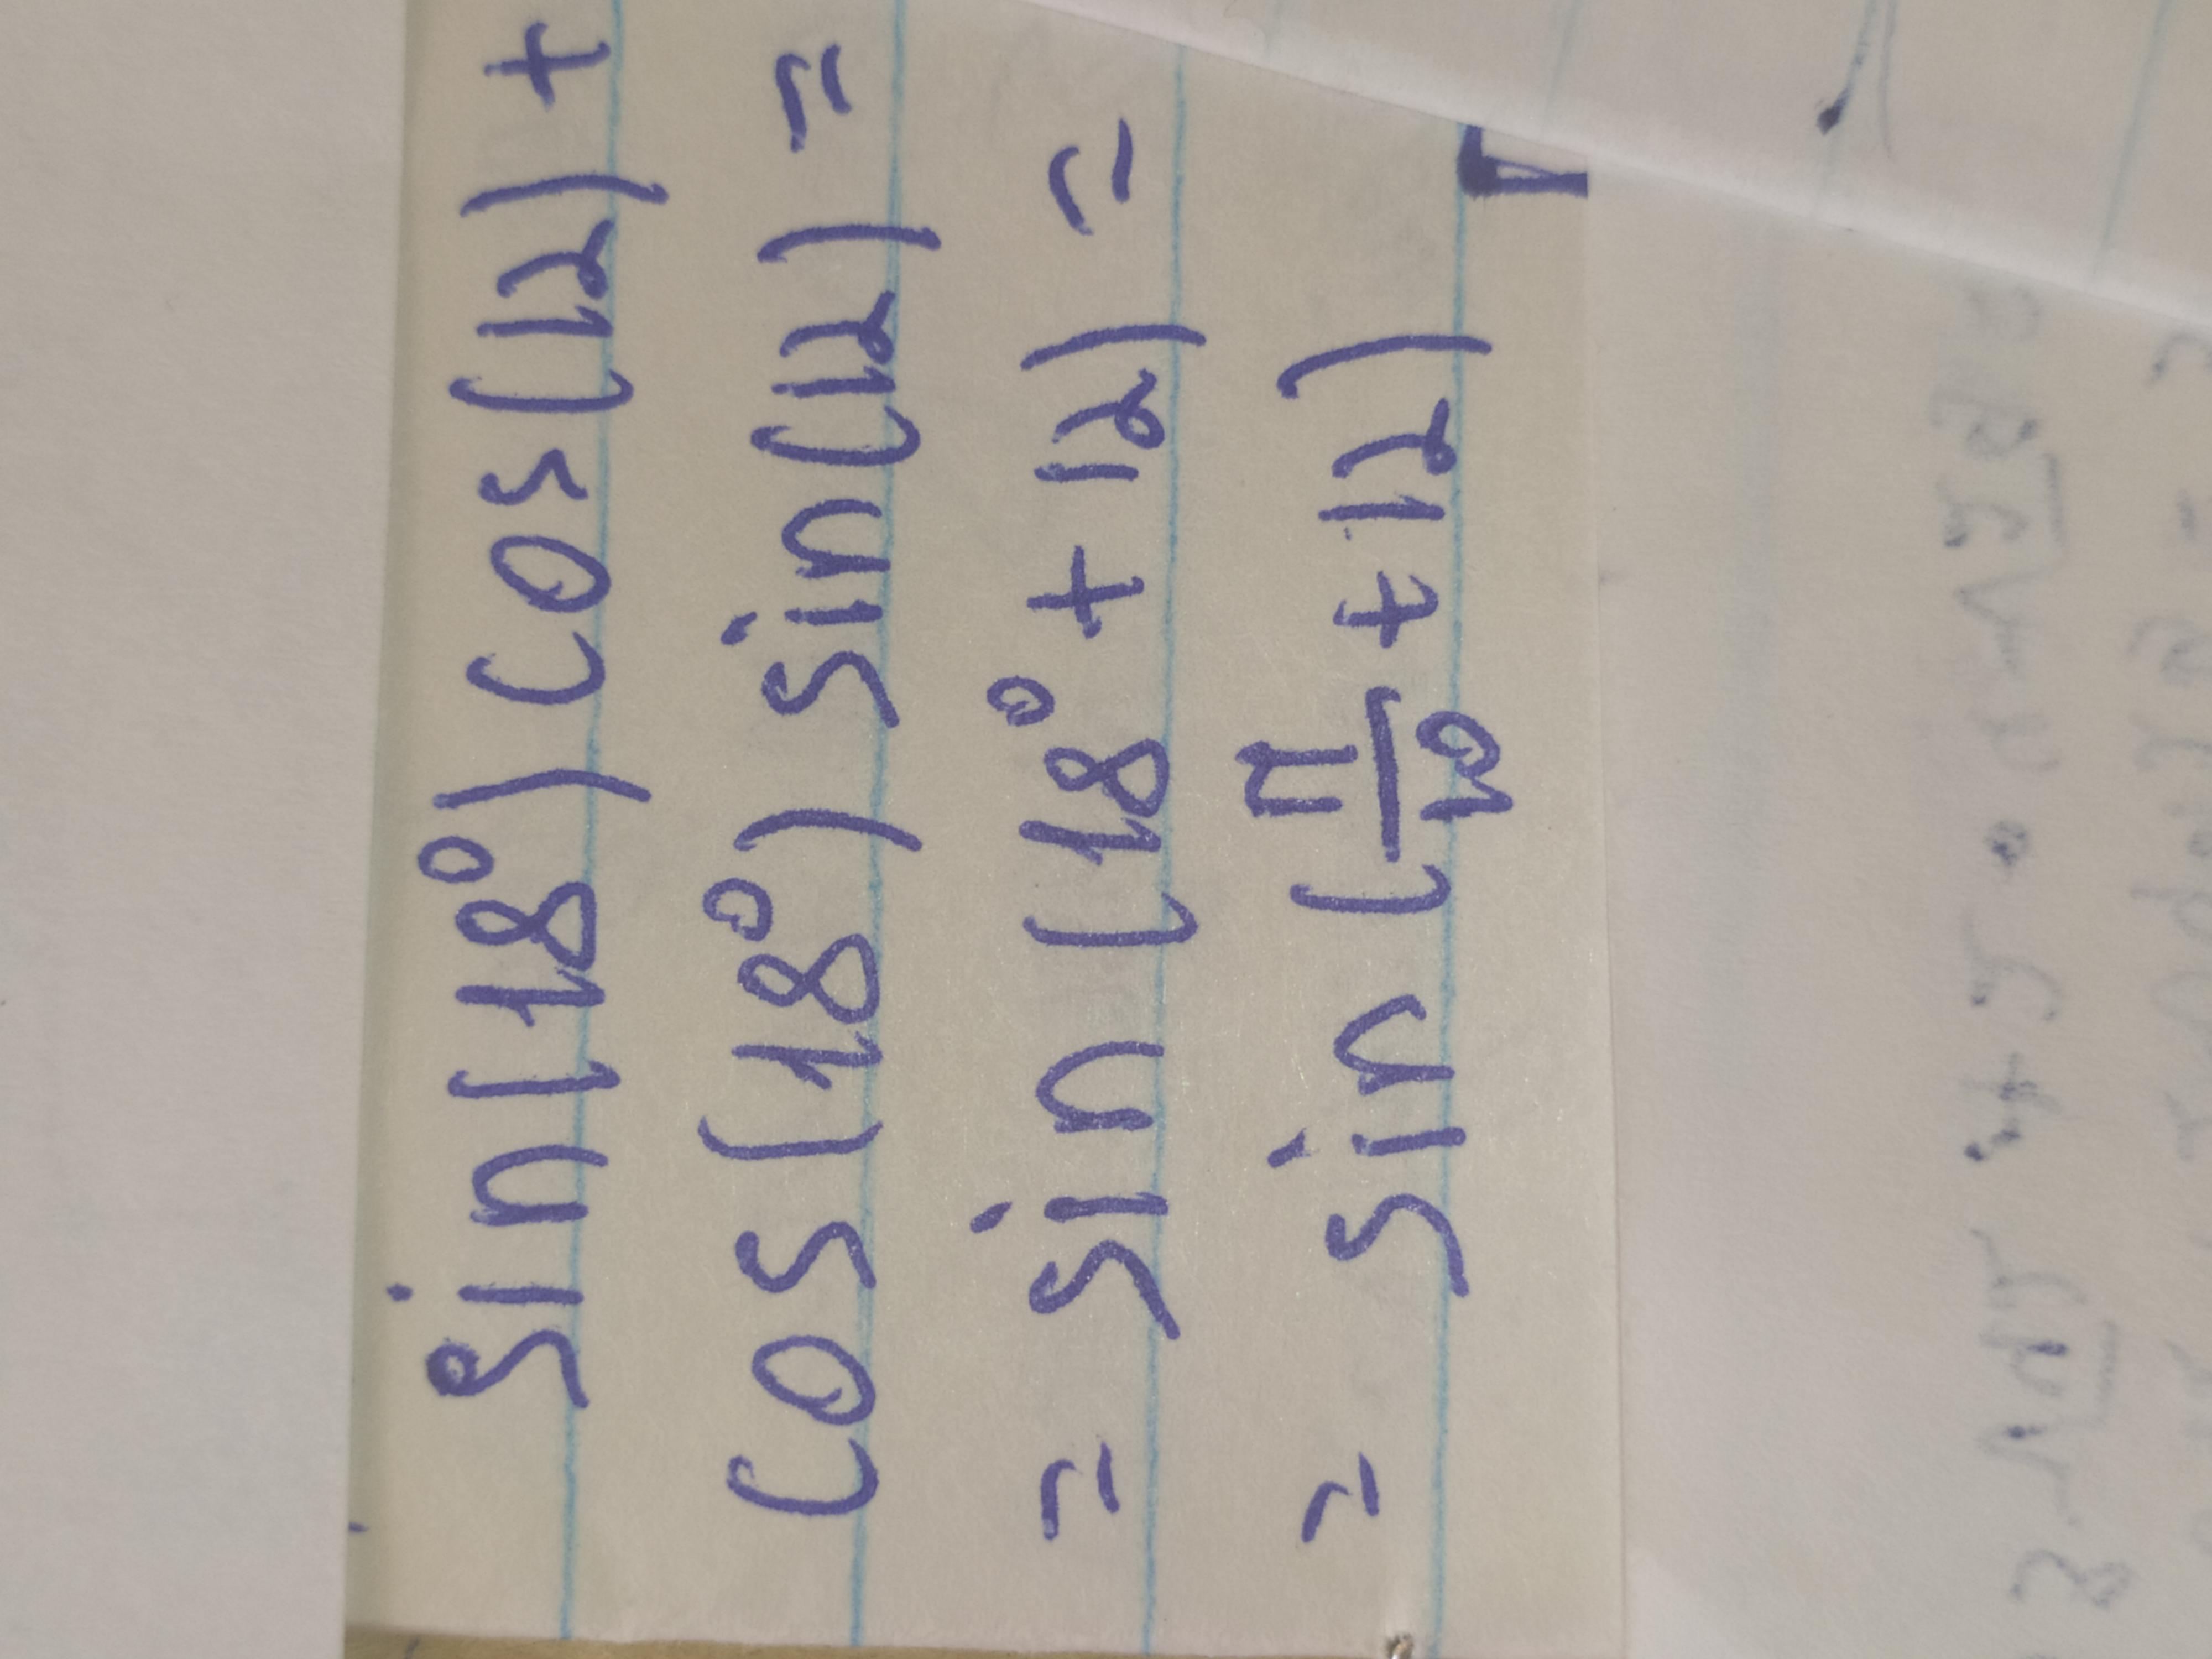 sin(18°) cos(12) +
cos(18°) sin(12) =
= sin(18° + 12) =
= sin(π/10 + 12)